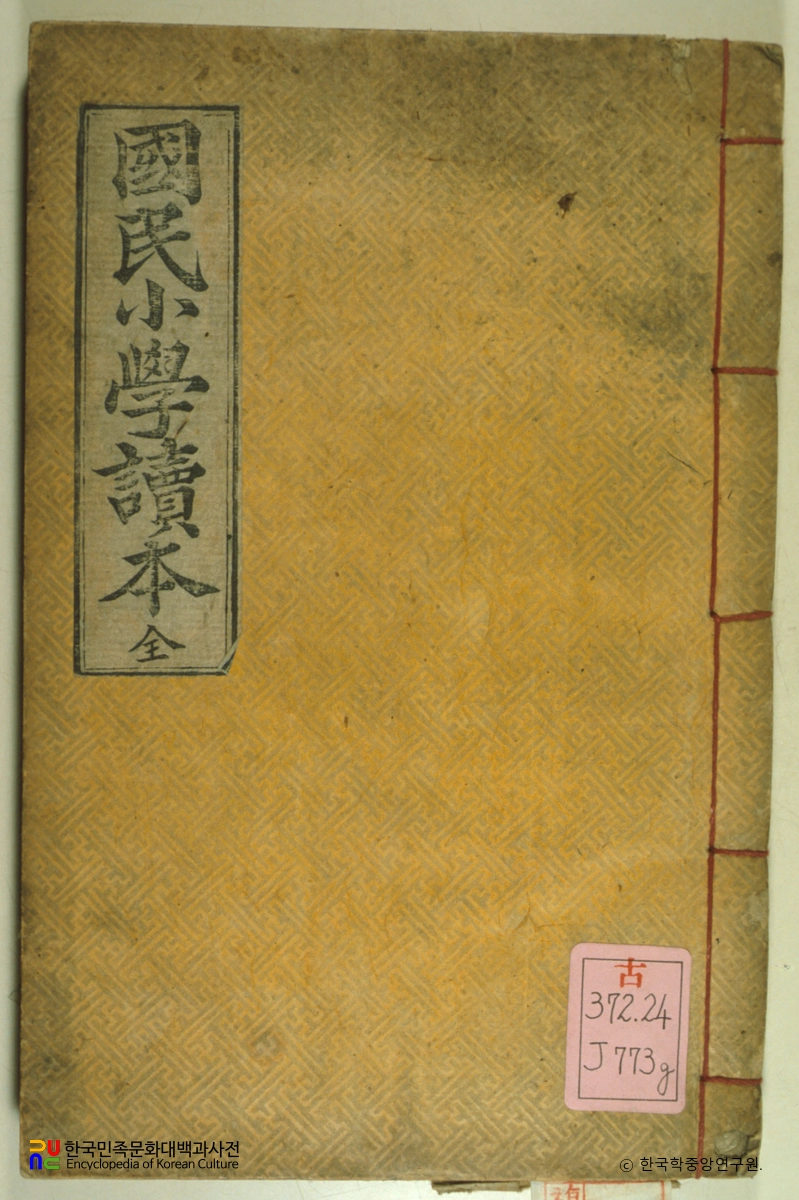 國民小學讀本 全
古
372.24
J773g
한국민족문화대백과사전
Encyclopedia of Korean Culture
ⓒ 한국학중앙연구원.